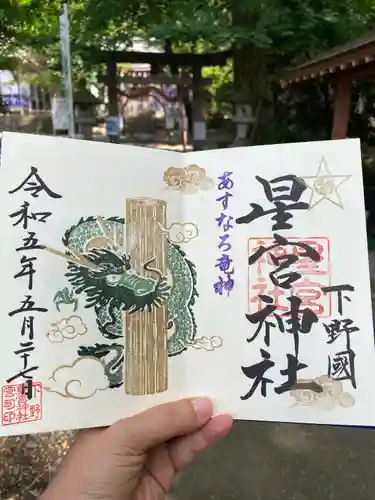 下野國
星宮神社
星宮神社
あすなろ竜神
令和五年五月二十七日
下野
星宮神社
宮司之印